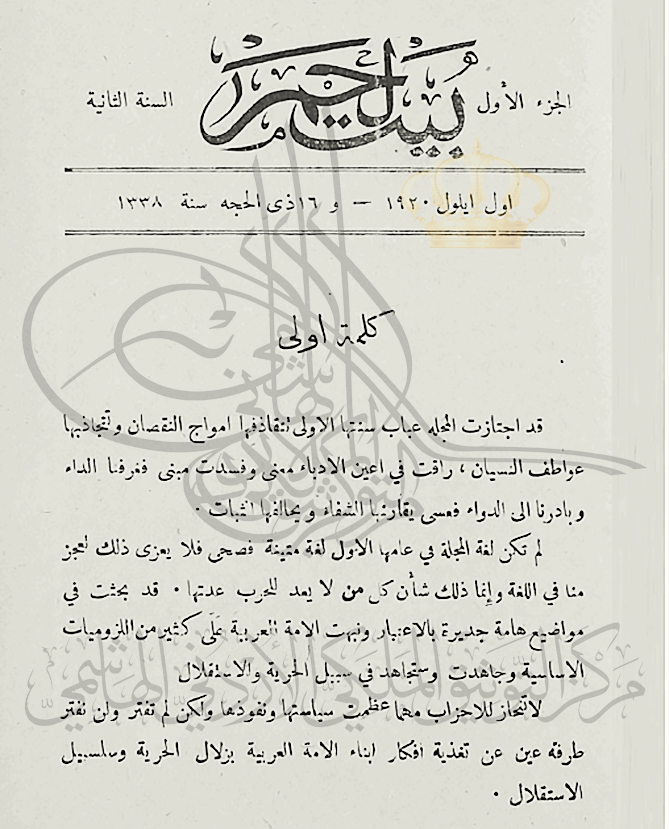 الجزء الأول
بيت لحم
السنة الثانية
اول ايلول ١٩٢٠ — و ١٦ ذى الحجه سنة ١٣٣٨
كلمة اولى
قد اجتازت المجله عباب سنتها الاولى تتقاذفها امواج النقصان وتتجاذبها
عواطف النسيان ، راقت في اعين الادباء معنى وفسدت مبنى فعرفنا الداء
وبادرنا الى الدواء فعسى يقارنها الشفاء ويحالفها الثبات ٠
لم تكن لغة المجلة في عامها الاول لغة متينة فصحى فلا يعزى ذلك لعجز
منا في اللغة وإنما ذلك شأن كل من لا يعد للحرب عدتها ٠ قد بحثت في
مواضيع هامة جديرة بالاعتبار ونبهت الامة العربية على كثير من اللزوميات
الاساسية وجاهدت وستجاهد في سبيل الحرية والاستقلال
لا تنحاز للاحزاب مهما عظمت سياستها ونفوذها ولكن لم تفتر ولن تفتر
طرفة عين عن تغذية افكار ابناء الامة العربية بزلال الحرية وسلسبيل
الاستقلال ٠
مركز التوثيق الملكي الأردني الهاشمي